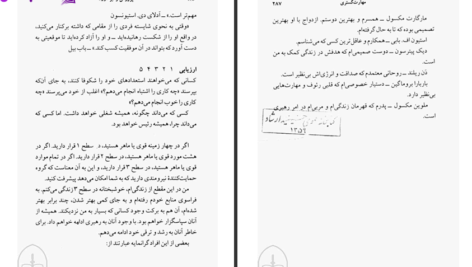 مهم‌تر است» ــ آدلای دی. استیونسون
دوقتی به نحوی شایسته فردی را از مقامی که داشته برکنار می‌کنید،
در واقع او را از شکست رهانیده‌اید ــ و او را آزاد کرده‌اید تا موقعیتی به
دست آورد که بتواند در آن موفقیت کسب کند.» ــ باب بیل
ارزیابی ۱ ۲ ۳ ۴ ۵
کسانی که می‌خواهند استعدادهای خود را شکوفا کنند، به جای آن‌که
بپرسند «چه کاری را اشتباه انجام می‌دهم؟» اغلب از خود می‌پرسند «چه
کاری را خوب انجام می‌دهم؟»
کسی که می‌داند چگونه، همیشه شغلی خواهد داشت. اما کسی که
می‌داند چرا، همیشه رئیس خواهد بود.
اگر در چهار زمینه قوی یا ماهر هستید، در سطح ۱ قرار دارید. اگر در
هشت مورد قوی یا ماهر هستید، در سطح ۲ قرار دارید. اگر در تمام موارد
قوی یا ماهر هستید، در سطح ۳ قرار دارید، و این به آن معناست که گروه
حمایت‌کنندهٔ نیرومندی دارید که به شما امکان می‌دهد پیشرفت کنید.
من در این مقطع از زندگی‌ام، خوشبختانه در سطح ۳ زندگی می‌کنم. به
فراسوی منابع خودم رفته‌ام و به جای کمی بهتر شدن، چند برابر بهتر
شده‌ام، آن هم به برکت وجود کسانی که بسیار به من نزدیکند. همیشه از
آنان سپاسگزار خواهم بود. با وجود آنان به رهبری ادامه خواهم داد. برای
خاطر آنان به رشد و ترقی خود ادامه می‌دهم.
بعضی از این افراد گرانمایه عبارتند از:
مهارت‌گستری ۲۸۷
مارگارت مکسول ــ همسرم و بهترین دوستم. ازدواج با او بهترین
تصمیمی بوده که تا به حال گرفته‌ام.
استیون اف. بابی ــ همکارم و عاقل‌ترین کسی که می‌شناسم.
دیک پیترسون ــ دوست صمیمی‌ام که هدفش در زندگی کمک به من
است.
دَن ریلند ــ روحانی معتمدم که صداقت و انرژی‌اش بی‌نظیر است.
باربارا بروماگین ــ دستیار خصوصی‌ام که قلبی رئوف و مهارت‌هایی
بی‌نظیر دارد.
ملوین مکسول ــ پدرم که قهرمان زندگی‌ام و مربی‌ام در امر رهبری
است.